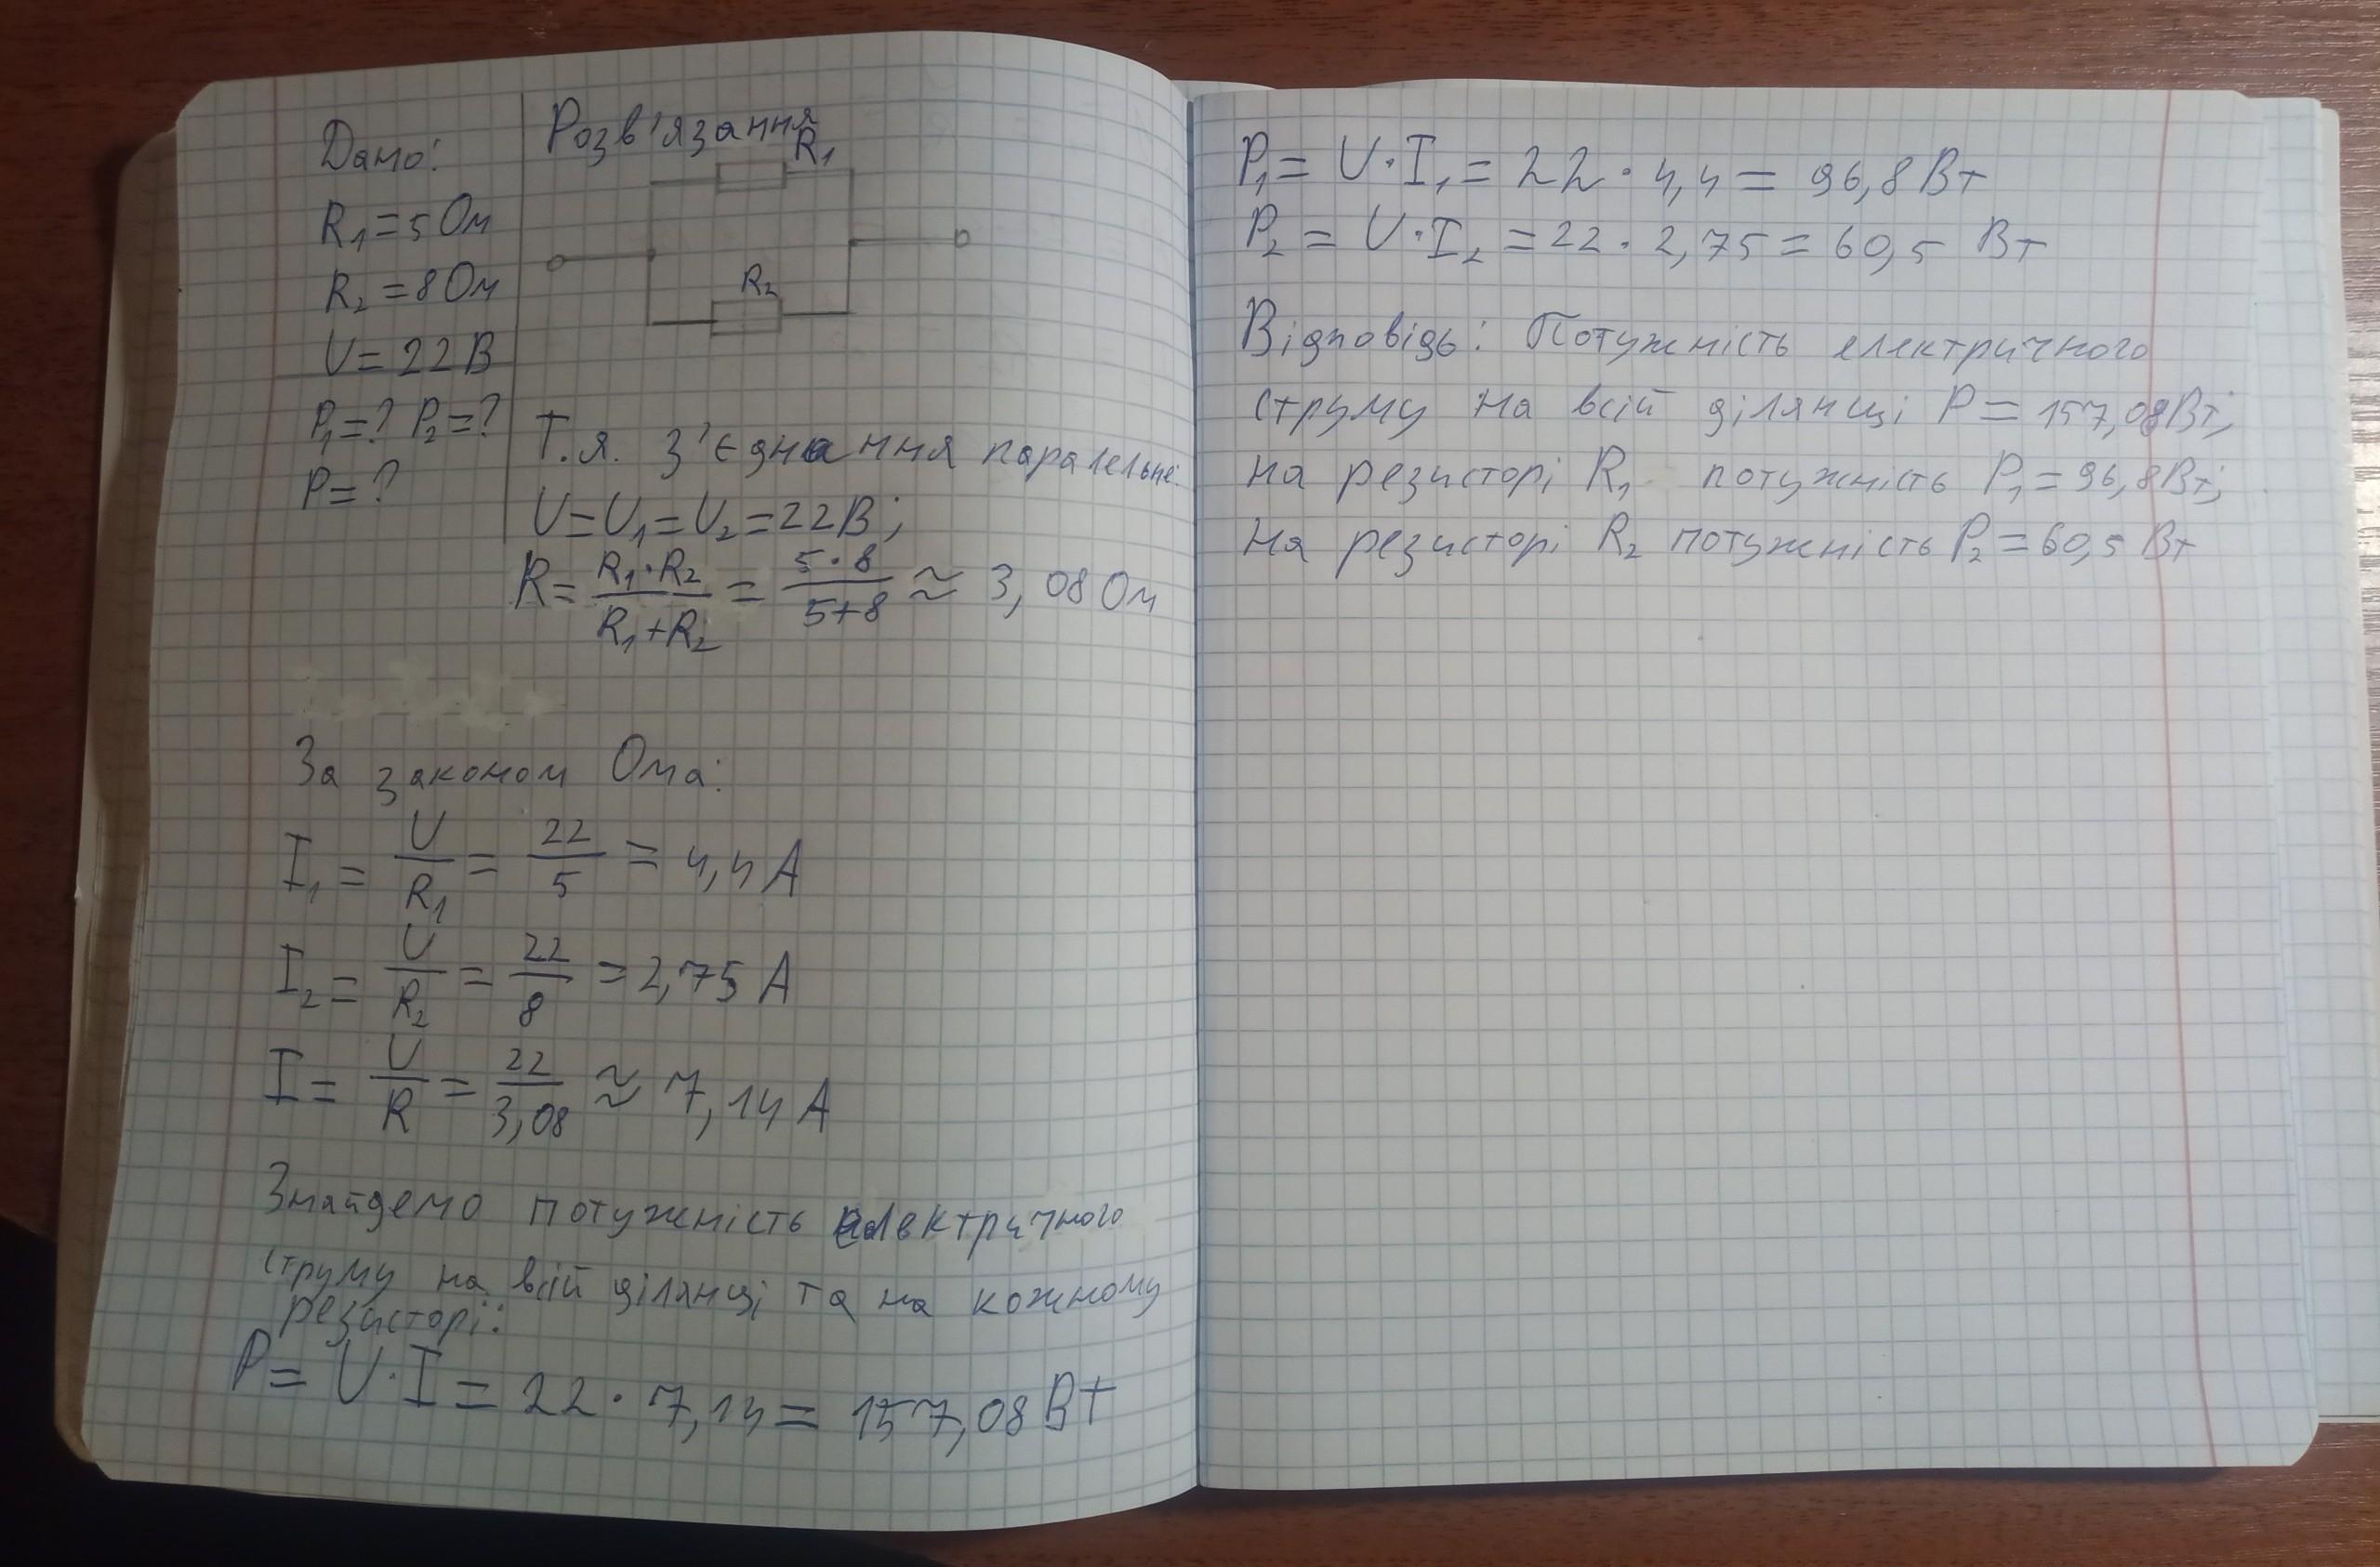 Дано:
R₁=5 Ом
R₂=8 Ом
U=22В
P₁=? P₂=?
P=?
Розв'язання
R₁
R₂
Т.я. з'єднання паралельне:
U=U₁=U₂=22В;
R= R₁·R₂/R₁+R₂ = 5·8/5+8 ≈ 3,08 Ом
За законом Ома:
I₁= U/R₁ = 22/5 = 4,4 А
I₂= U/R₂ = 22/8 = 2,75 А
I= U/R = 22/3,08 ≈ 7,14 А
Знайдемо потужність електричного
струму на всій ділянці та на кожному
резисторі:
P= U·I = 22·7,14 = 157,08 Вт
P₁= U·I₁ = 22·4,4 = 96,8 Вт
P₂ = U·I₂ = 22·2,75 = 60,5 Вт
Відповідь: Потужність електричного
струму на всій ділянці P = 157,08Вт;
на резисторі R₁ потужність P₁=96,8Вт;
на резисторі R₂ потужність P₂=60,5 Вт